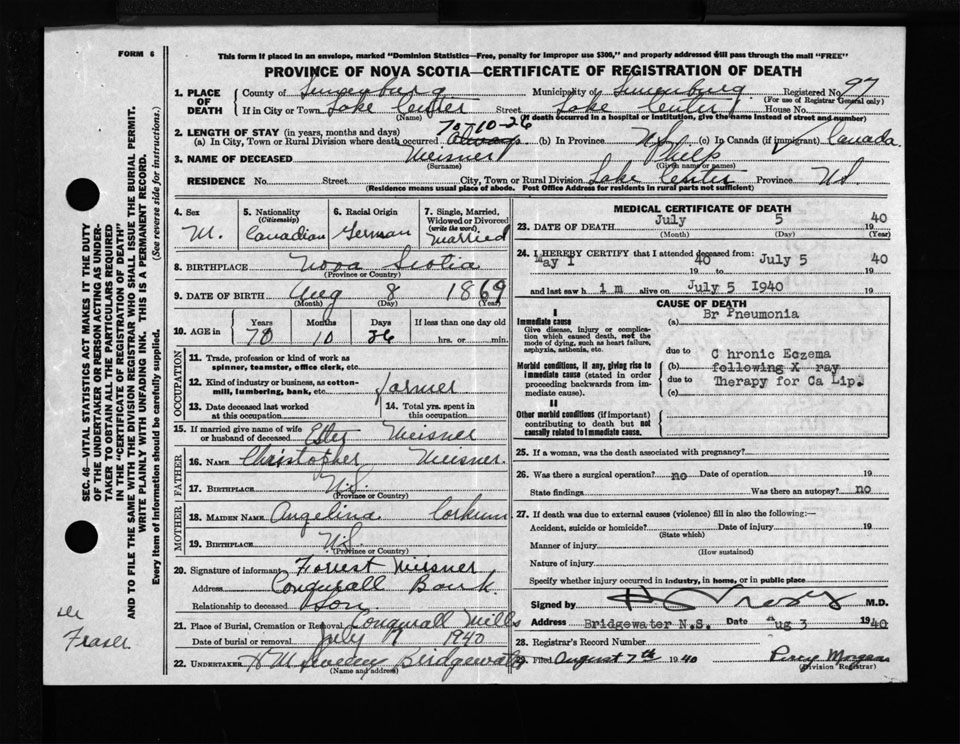 FORM 6
This form if placed in an envelope, marked "Dominion Statistics—Free, penalty for improper use $300," and properly addressed will pass through the mail "FREE"
PROVINCE OF NOVA SCOTIA—CERTIFICATE OF REGISTRATION OF DEATH
1. PLACE OF DEATH County of Lunenburg Municipality of Lunenburg Registered No. 97
(For use of Registrar General only)
If in City or Town Lake Center Street Lake Center House No.
(Name) (If death occurred in a hospital or institution, give the name instead of street and number)
2. LENGTH OF STAY (in years, months and days) 70-10-26
(a) In City, Town or Rural Division where death occurred always (b) In Province N.S. (c) In Canada (if immigrant) Canada
3. NAME OF DECEASED Meisner
(Surname) (Given name or names)
RESIDENCE No. Street City, Town or Rural Division Lake Center Province N.S.
(Residence means usual place of abode. Post Office Address for residents in rural parts not sufficient)
4. Sex M.
5. Nationality (Citizenship) Canadian
6. Racial Origin German
7. Single, Married, Widowed or Divorced (write the word) Married
8. BIRTHPLACE Nova Scotia
(Province or Country)
9. DATE OF BIRTH Aug 8 1869
(Month) (Day) (Year)
10. AGE in Years Months Days If less than one day old
70 10 26 hrs. or min.
OCCUPATION
11. Trade, profession or kind of work as spinner, teamster, office clerk, etc.
12. Kind of industry or business, as cotton-mill, lumbering, bank, etc. farmer
13. Date deceased last worked at this occupation
14. Total yrs. spent in this occupation
15. If married give name of wife or husband of deceased Meisner
FATHER
16. NAME Christopher Meisner
17. BIRTHPLACE N.S.
(Province or Country)
MOTHER
18. MAIDEN NAME Angelina Corkum
19. BIRTHPLACE N.S.
(Province or Country)
20. Signature of informant Forrest Meisner
Address Conqurall Bank
Relationship to deceased son.
21. Place of Burial, Cremation or Removal Conqurall Mills
Date of burial or removal July 7 1940
22. UNDERTAKER Bridgewater
(Name and address)
MEDICAL CERTIFICATE OF DEATH
23. DATE OF DEATH July 5 40
(Month) (Day) (Year)
24. I HEREBY CERTIFY that I attended deceased from:
May 1 19 40 to July 5 19 40
and last saw h im alive on July 5 1940
CAUSE OF DEATH
I
Immediate cause
Give disease, injury or complication which caused death, not the mode of dying, such as heart failure, asphyxia, asthenia, etc.
(a) Br Pneumonia
due to
Morbid conditions, if any, giving rise to immediate cause (stated in order proceeding backwards from immediate cause).
(b) Chronic Eczema following X ray
due to
(c) Therapy for Ca Lip.
II
Other morbid conditions (if important) contributing to death but not causally related to immediate cause.
25. If a woman, was the death associated with pregnancy?
26. Was there a surgical operation? no Date of operation 19
State findings Was there an autopsy? no
27. If death was due to external causes (violence) fill in also the following:—
Accident, suicide or homicide? Date of injury 19
(State which)
Manner of injury
(How sustained)
Nature of injury
Specify whether injury occurred in industry, in home, or in public place
Signed by M.D.
Address Bridgewater N.S. Date Aug 3 1940
28. Registrar's Record Number
29. Filed August 7th 1940
(Division Registrar)
SEC. 46—VITAL STATISTICS ACT MAKES IT THE DUTY OF THE UNDERTAKER OR PERSON ACTING AS UNDERTAKER TO OBTAIN ALL THE PARTICULARS REQUIRED IN THE "CERTIFICATE OF REGISTRATION OF DEATH"
AND TO FILE THE SAME WITH THE DIVISION REGISTRAR WHO SHALL ISSUE THE BURIAL PERMIT.
WRITE PLAINLY WITH UNFADING INK. THIS IS A PERMANENT RECORD.
Every item of information should be carefully supplied. (See reverse side for instructions.)
Fraser